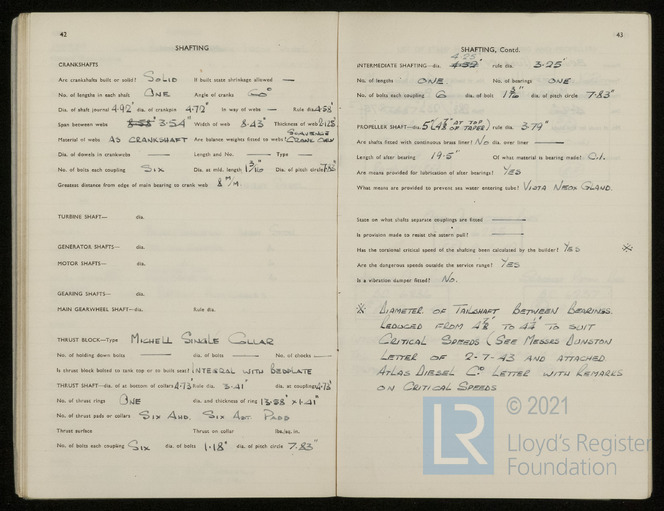 42
SHAFTING
CRANKSHAFTS
Are crankshafts built or solid? SOLID If built state shrinkage allowed —
No. of lengths in each shaft ONE Angle of cranks 60°
Dia. of shaft journal 4.92" dia. of crankpin 4.72" In way of webs — Rule dia. 4.58"
Span between webs 3.54" Width of web 8.43" Thickness of web 2.125"
Material of webs AS CRANKSHAFT Are balance weights fitted to webs? SCAVENGE CRANK ONLY
Dia. of dowels in crankwebs — Length and No. — Type —
No. of bolts each coupling SIX Dia. at mid. length 1 3/16" Dia. of pitch circle
Greatest distance from edge of main bearing to crank web 8 M/M
TURBINE SHAFT— dia.
GENERATOR SHAFTS— dia.
MOTOR SHAFTS— dia.
GEARING SHAFTS— dia.
MAIN GEARWHEEL SHAFT—dia. Rule dia.
THRUST BLOCK—Type MICHELL SINGLE COLLAR
No. of holding down bolts — dia. of bolts — No. of chocks —
Is thrust block bolted to tank top or to built seat? INTEGRAL WITH BEDPLATE
THRUST SHAFT—dia. of at bottom of collars 4.73" Rule dia. 3.41" dia. at coupling 4.73"
No. of thrust rings ONE dia. and thickness of ring 13.38" x 1.41"
No. of thrust pads or collars SIX AHD. SIX AST. PADS
Thrust surface Thrust on collar lbs./sq. in.
No. of bolts each coupling SIX dia. of bolts 1.18" dia. of pitch circle 7.83"
43
SHAFTING, Contd.
4.25
INTERMEDIATE SHAFTING—dia. rule dia. 3.25"
No. of lengths ONE No. of bearings ONE
No. of bolts each coupling 6 dia. of bolt 1 3/16" dia. of pitch circle 7.83"
PROPELLER SHAFT—dia. 5" (4 7/8" AT TOP OF TAPER) rule dia. 3.79"
Are shafts fitted with continuous brass liner? NO dia. over liner —
Length of after bearing 19.5" Of what material is bearing made? C.I.
Are means provided for lubrication of after bearings? YES
What means are provided to prevent sea water entering tube? VICKTA NEOX GLAND.
State on what shafts separate couplings are fitted —
Is provision made to resist the astern pull? —
Has the torsional critical speed of the shafting been calculated by the builder? YES ※
Are the dangerous speeds outside the service range? YES
Is a vibration damper fitted? NO.
※ DIAMETER OF TAILSHAFT BETWEEN BEARINGS.
REDUCED FROM 4 7/8" TO 4 1/4" TO SUIT
CRITICAL SPEEDS (SEE MESSRS DUNSTON
LETTER OF 2-7-43 AND ATTACHED
ATLAS DIESEL Co LETTER WITH REMARKS
ON CRITICAL SPEEDS
© 2021
LR
Lloyd's Register
Foundation